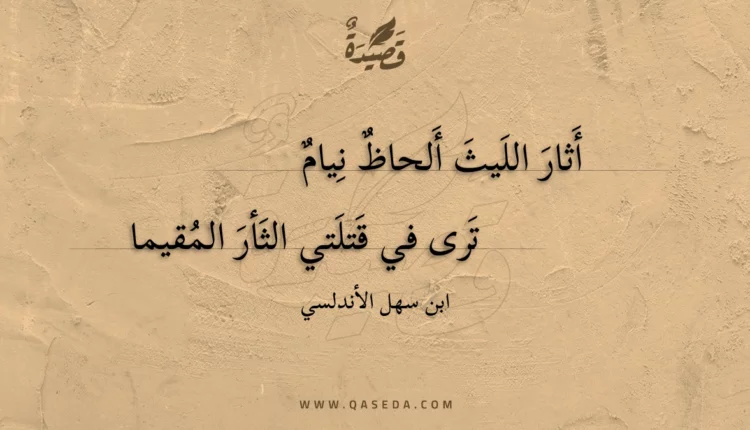 قَصِيدَةٌ
أَثارَ اللَيثَ أَلحاظٌ نِيامٌ
تَرى في قَتلَتي الثَأرَ المُقيما
ابن سهل الأندلسي
WWW.QASEDA.COM